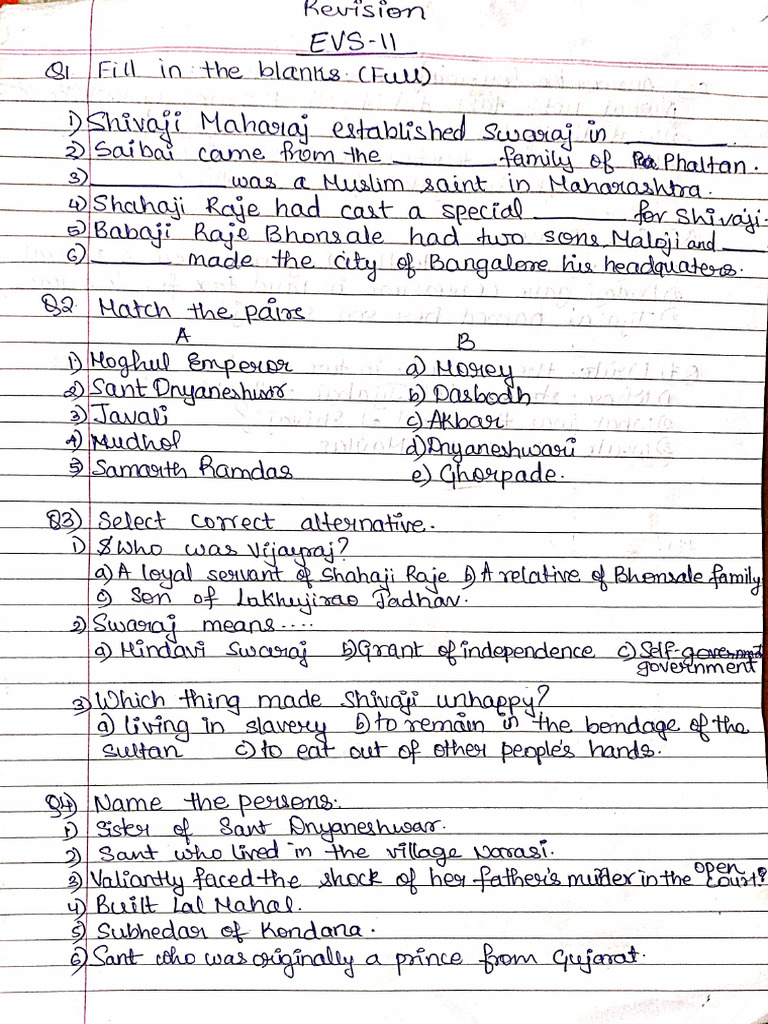 Revision
EVS-11
Q1 Fill in the blanks. (Full)
1) Shivaji Maharaj established Swaraj in ________.
2) Saibai came from the ________ family of Phaltan.
3) ________ was a Muslim saint in Maharashtra.
4) Shahaji Raje had cast a special ________ for Shivaji.
5) Babaji Raje Bhonsale had two sons, Maloji and ____
6) ________ made the city of Bangalore his headquaters.
Q2 Match the pairs
A B
1) Moghul Emperor a) Morey
2) Sant Dnyaneshwar b) Dasbodh
3) Javali c) Akbar
4) Mudhol d) Dnyaneshwari
5) Samarth Ramdas e) Ghorpade.
Q3) Select correct alternative.
1) Who was Vijayraj?
a) A loyal servant of Shahaji Raje b) A relative of Bhonsale family
c) Son of Lakhujirao Jadhav.
2) Swaraj means....
a) Hindavi Swaraj b) Grant of independence c) Self-
government
3) Which thing made Shivaji unhappy?
a) living in slavery b) to remain in the bondage of the
sultan c) to eat out of other people's hands.
Q4) Name the persons.
1) Sister of Sant Dnyaneshwar.
2) Sant who lived in the village Narasi.
3) Valiantly faced the shock of her father's murder in the open court?
4) Built Lal Mahal.
5) Subhedar of Kondana.
6) Sant who was originally a prince from Gujarat.